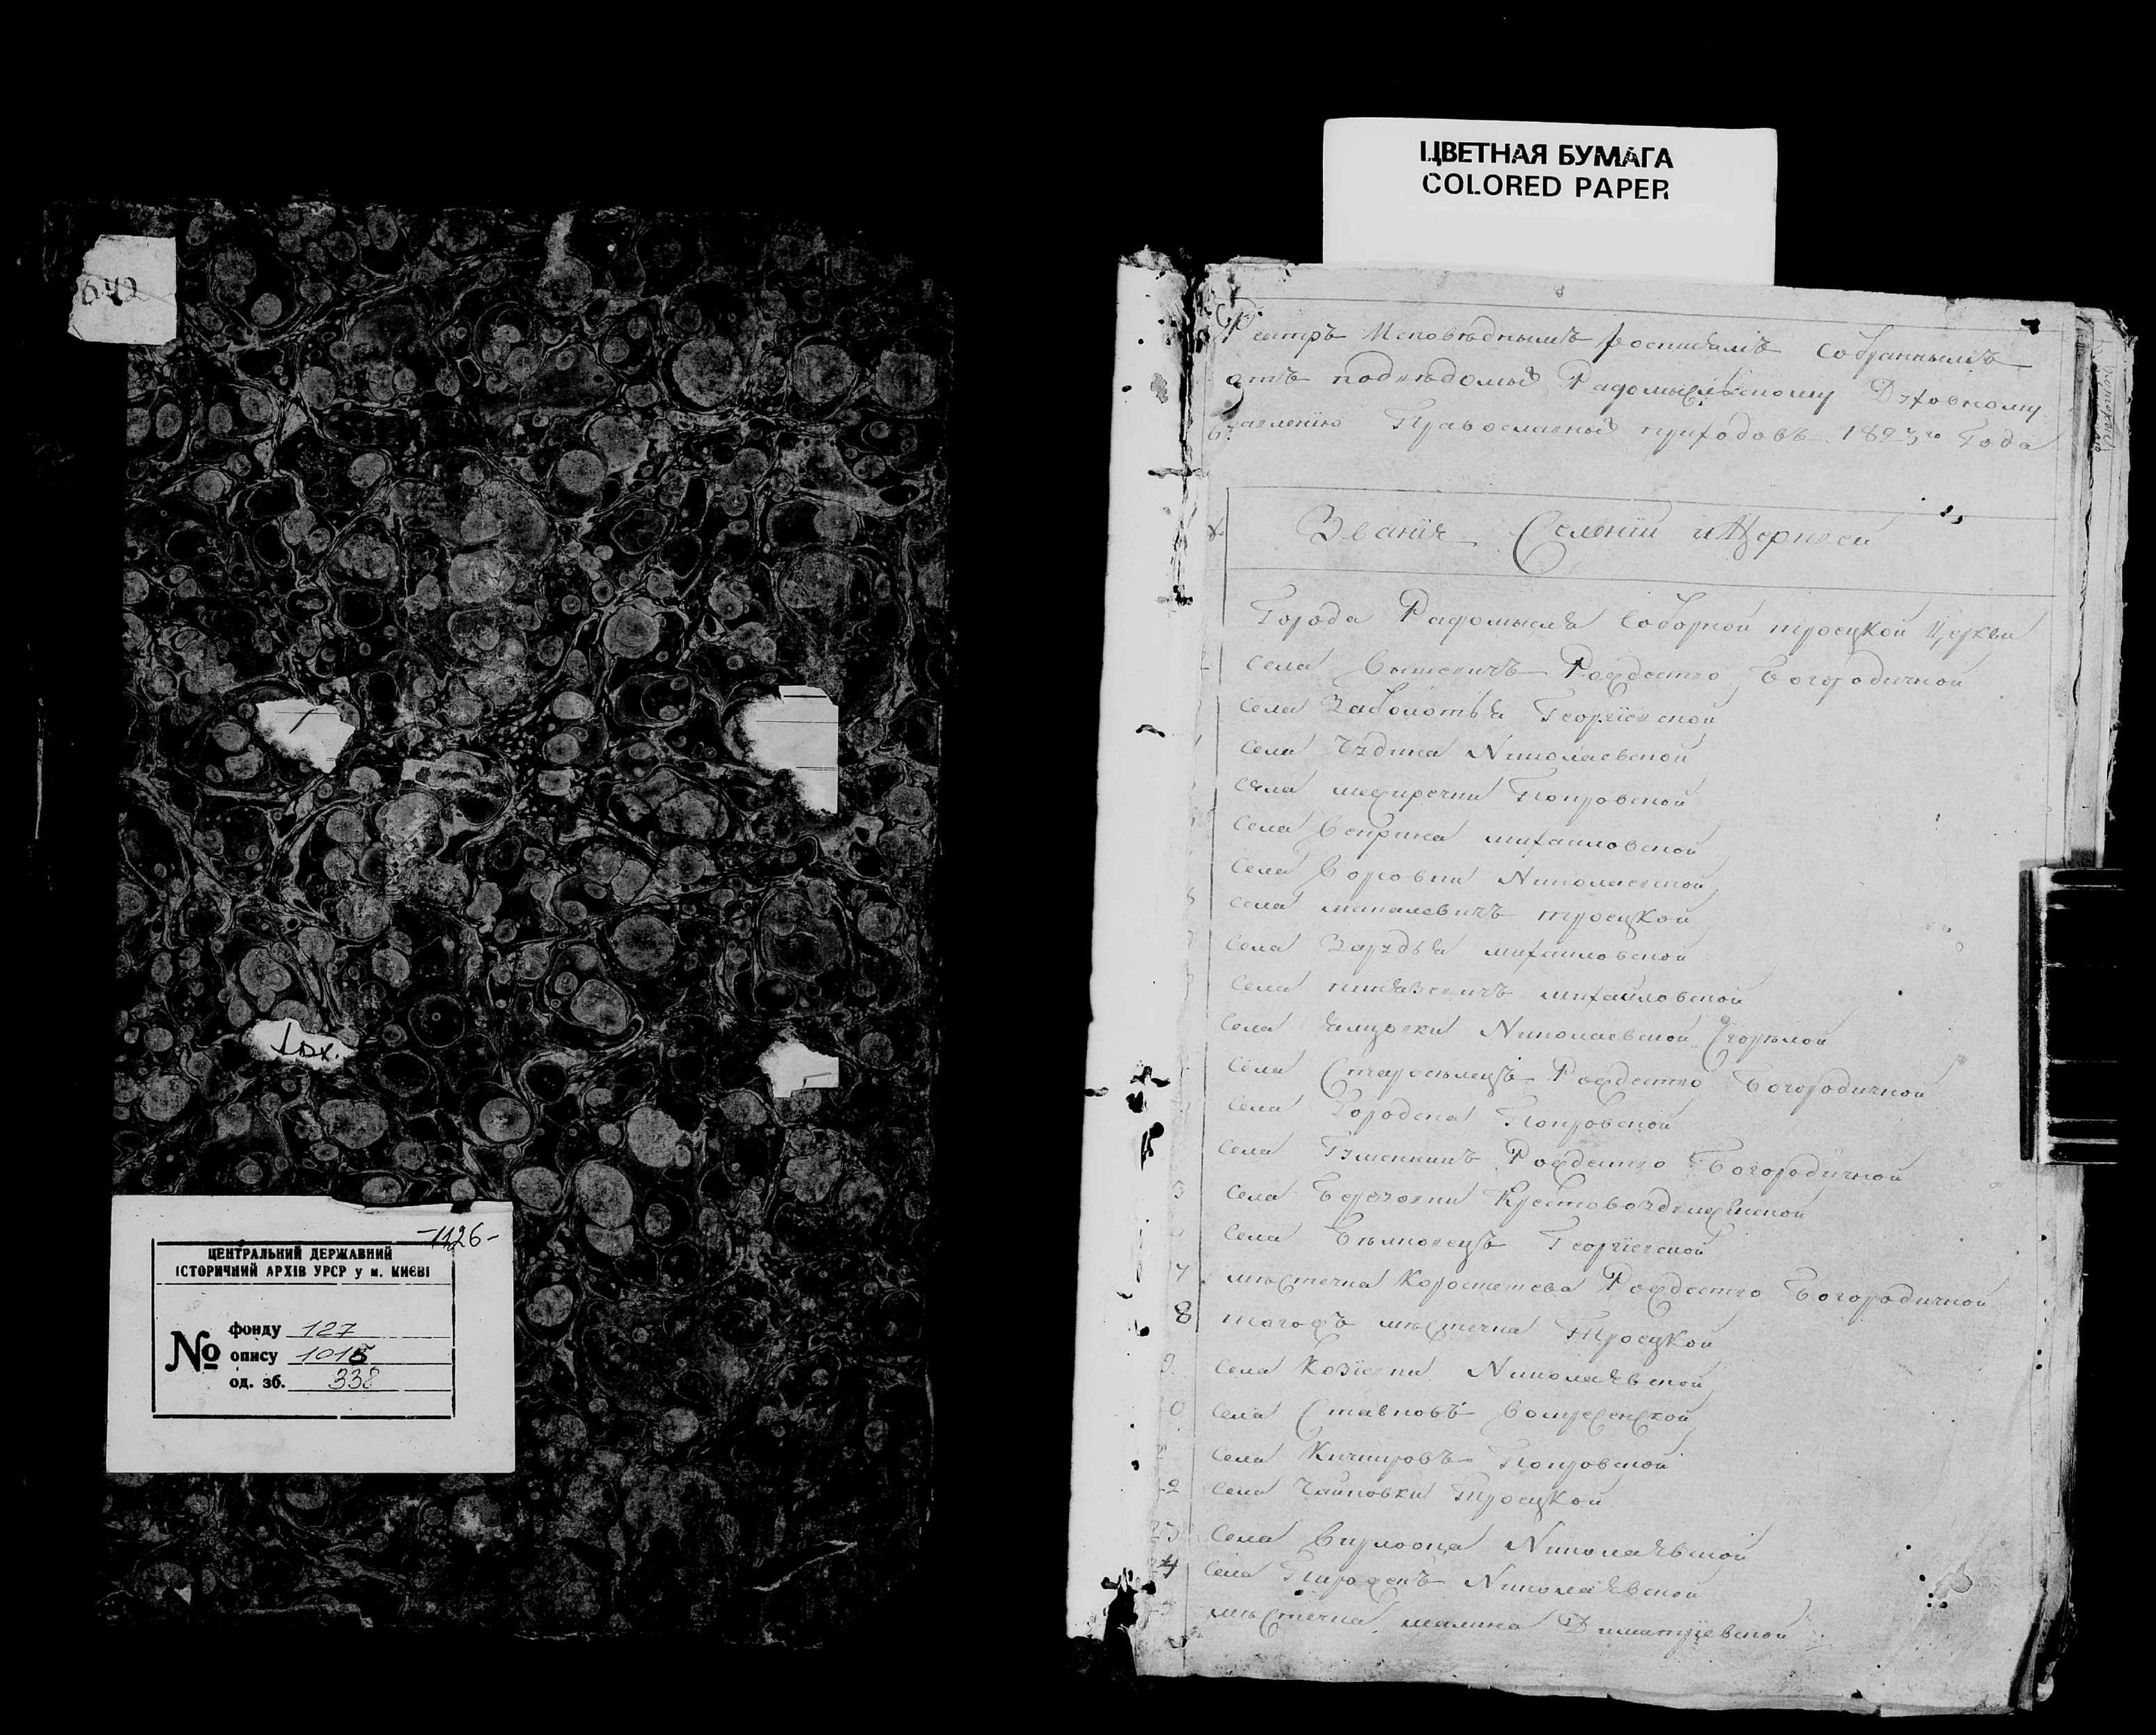 642
-1126-
ЦЕНТРАЛЬНИЙ ДЕРЖАВНИЙ
ІСТОРИЧНИЙ АРХІВ УРСР у м. КИЄВІ
№
фонду 127
опису 1015
од. зб. 338
ЦВЕТНАЯ БУМАГА
COLORED PAPER
Реэстръ Исповѣднымъ росписямъ собраннымъ
отъ подвѣдомыхъ Радомысльскому Духовному
Правленію Православныхъ приходовъ 1823го Года
Званіе Селеній и Церквей
Города Радомысля Соборной троецкой Церкви
села Вышевичъ Рождество Богородичной
села Заболотья Георгіевской
села Чудина Николаевской
села межиречки Покровской
села Веприна михайловской
села Борсовки Николаевской
села макалевичъ троецкой
села Зарудья михайловской
села михайловской
села Ямцовки Николаевской
села Старосѣлецъ Рождество Богородичной
села Городска Покровской
села Гуменникъ Рождество Богородичной
села Березовки Крестовоздвиженской
села Бѣлковецъ Георгіевской
7 мѣстечка Коростешева Рождество Богородичной
8 тогожъ мѣстечка Троецкой
9 села Козіевки Николаевской
села Ставковъ
села Кичкировъ Покровской
села Чайковки Троецкой
23 села Вирлоока Николаевской
24 села Пирожекъ Николаевской
мѣстечка малина Димитріевской